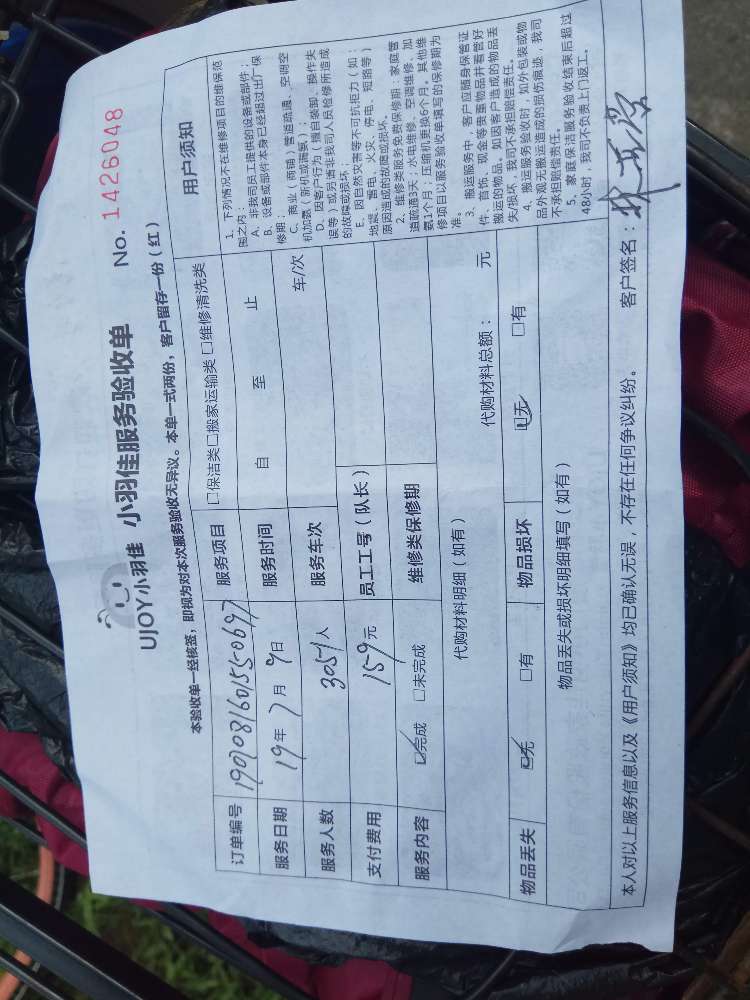 UJOY小羽佳 小羽佳服务验收单 No. 1426048
本验收单一经核签，即视为对本次服务验收无异议。本单一式两份，客户留存一份（红）
订单编号 190708160155069 服务项目 □保洁类□搬家运输类□维修清洗类
服务日期 19年7月9日 服务时间 自 至 止
服务人数 3057人 服务车次 车/次
支付费用 159元 员工工号（队长）
服务内容 ☑完成 □未完成 维修类保修期
代购材料明细（如有） 代购材料总额： 元
物品丢失 ☑无 □有 物品损坏 ☑无 □有
物品丢失或损坏明细填写（如有）
用户须知
1、下列情况不在维修项目的维保范
围之内：
A、非我司员工提供的设备或部件；
B、设备或部件本身已经超过出厂保
修期；
C、商业（商铺）管道疏通、空调空
机加氨（新机或漏氨）；
D、因客户行为（擅自装卸、操作失
误等）或另请非我司人员检修所造成
的故障或损坏；
E、因自然灾害等不可抗拒力（如：
地震、雷电、火灾、停电、短路等）
原因造成的故障或损坏。
2、维修类服务免费保修期：家庭管
道疏通3天；水电维修、空调维修、加
氨1个月；压缩机更换6个月。其他维
修项目以服务验收单填写的保修期为
准。
3、搬运服务中，客户应随身保管证
件、首饰、现金等贵重物品并看管好
搬运的物品。如因客户造成的物品丢
失/损坏，我司不承担赔偿责任。
4、搬运服务验收时，如外包装或物
品外观无搬运造成的损伤痕迹，我司
不承担赔偿责任。
5、家庭保洁服务验收结束后超过
48小时，我司不负责上门返工。
本人对以上服务信息以及《用户须知》均已确认无误，不存在任何争议纠纷。 客户签名：